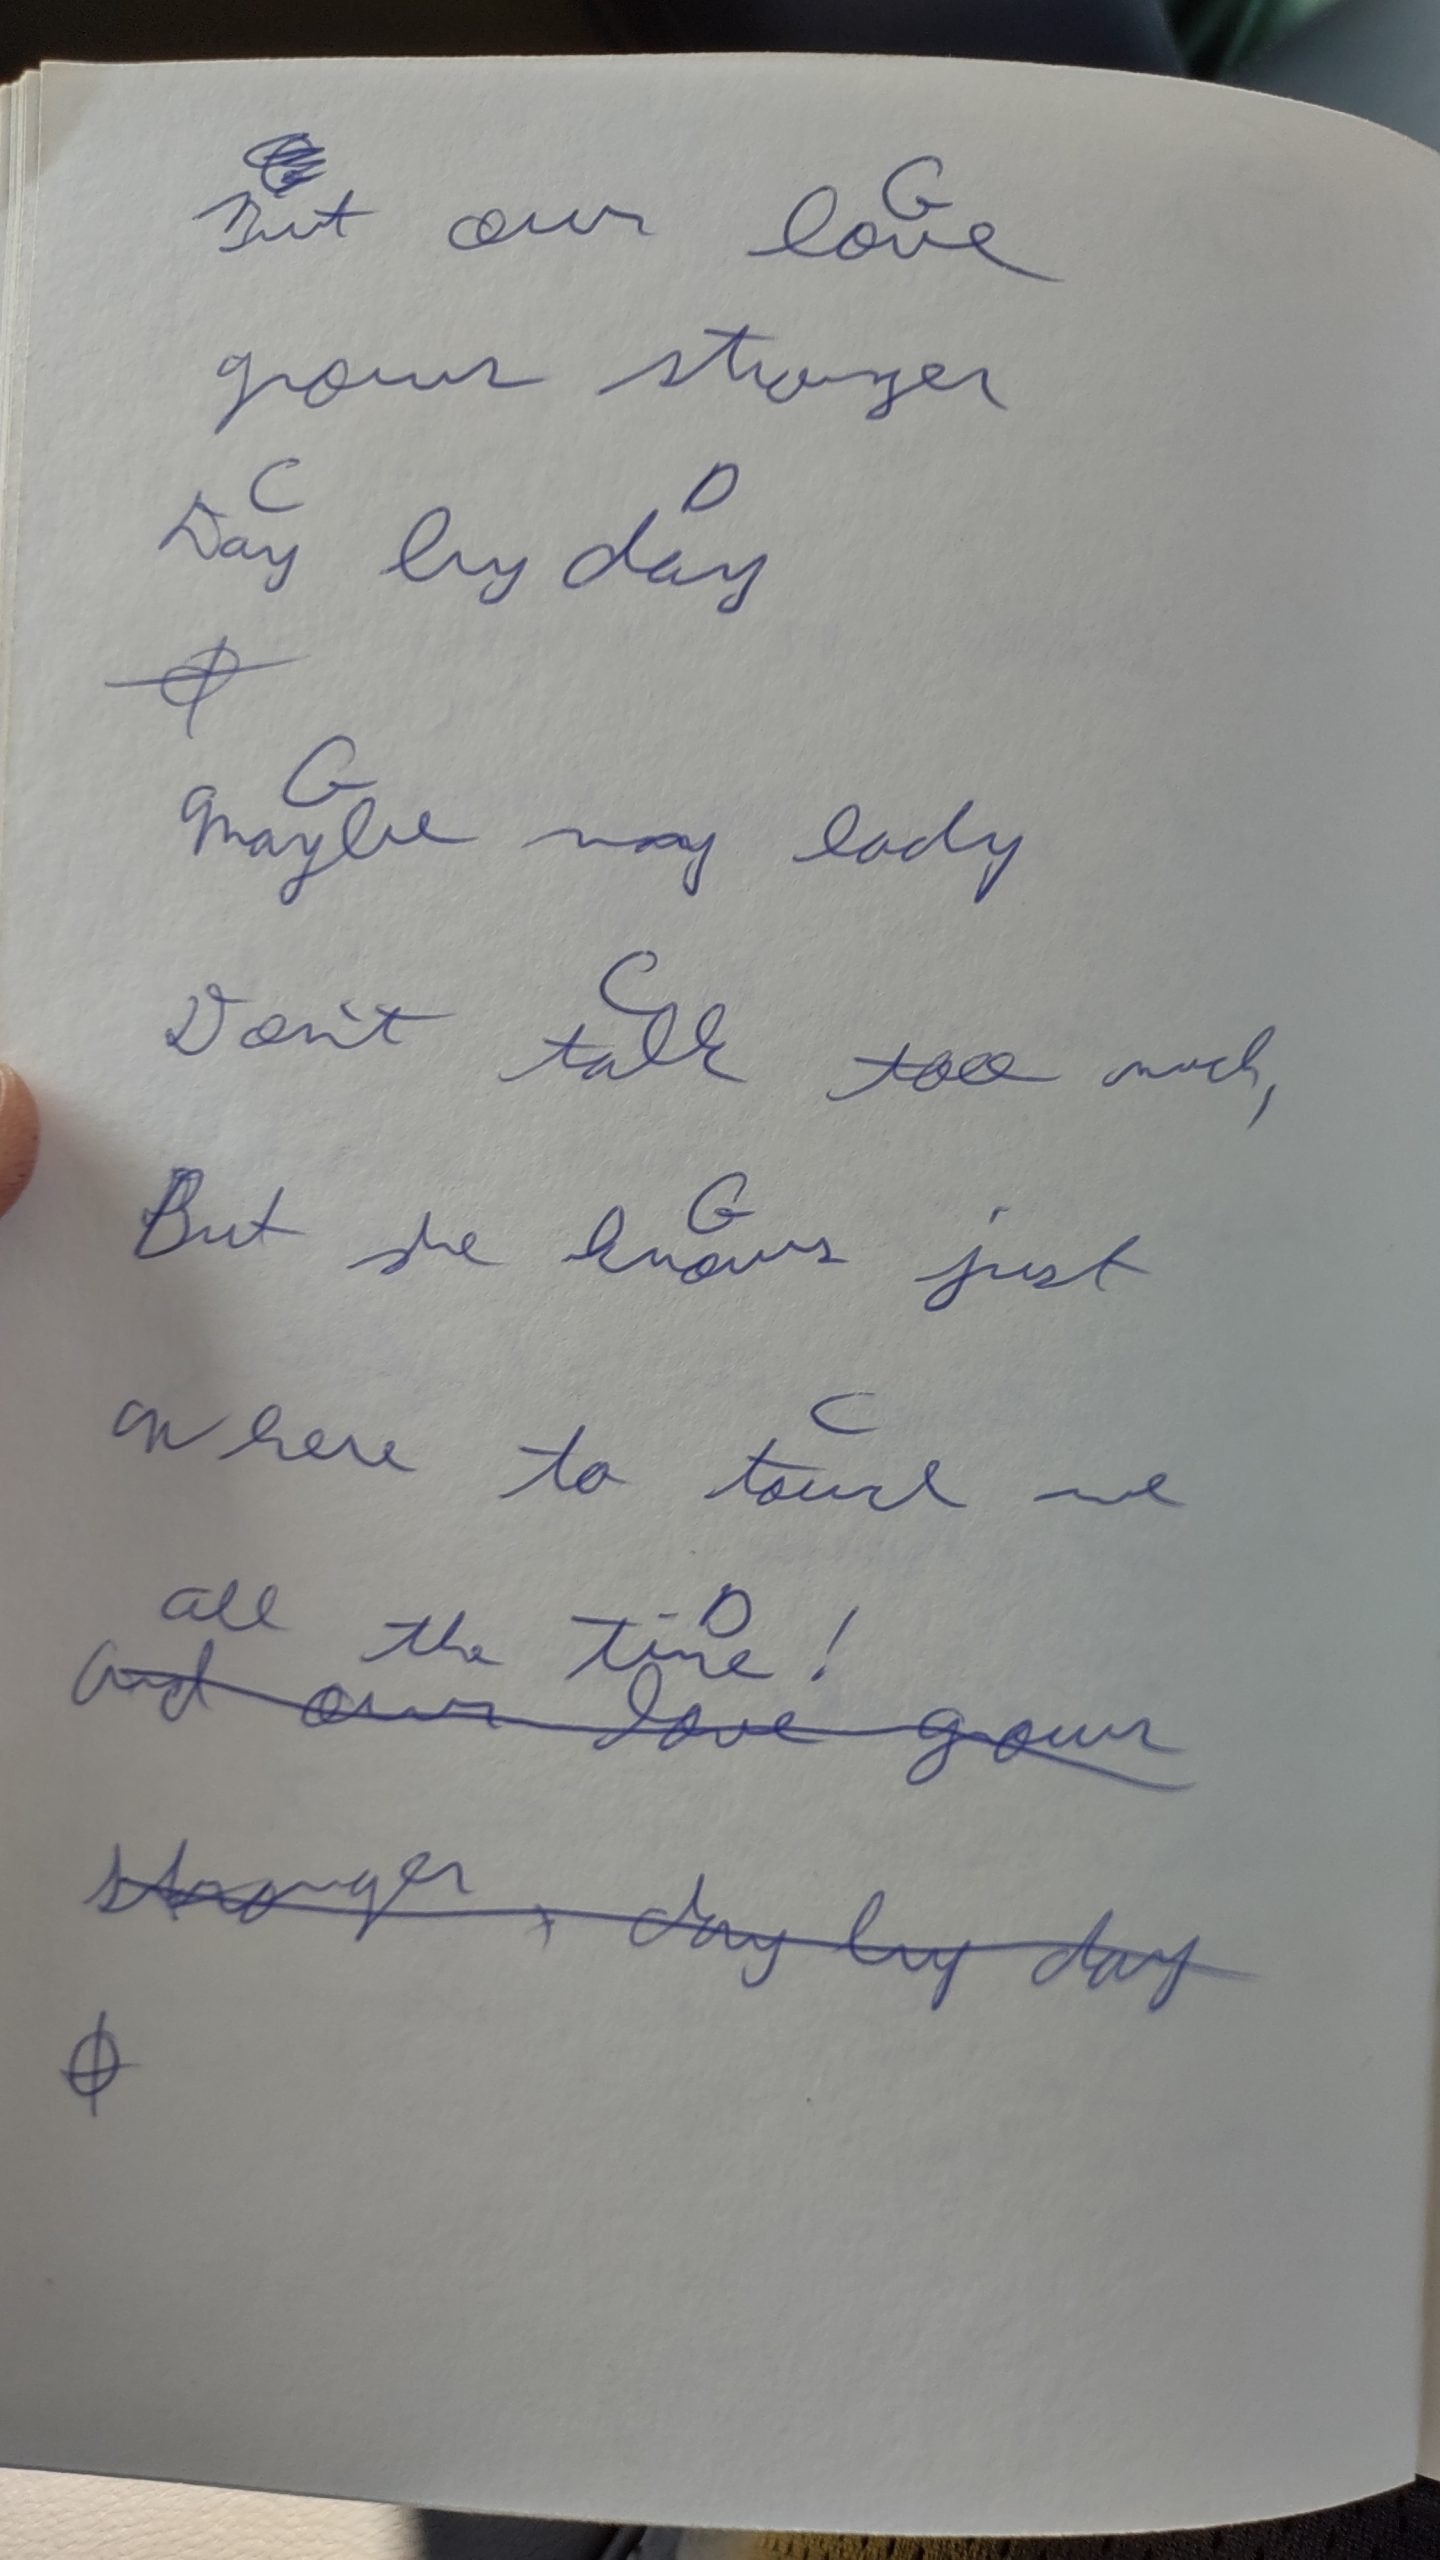 G
But our love
grows stronger
C D
Day by day
G
Maybe my lady
C
Don't talk too much,
G
But she knows just
C
Where to touch me
D
all the time!
And our love grows
stronger, day by day